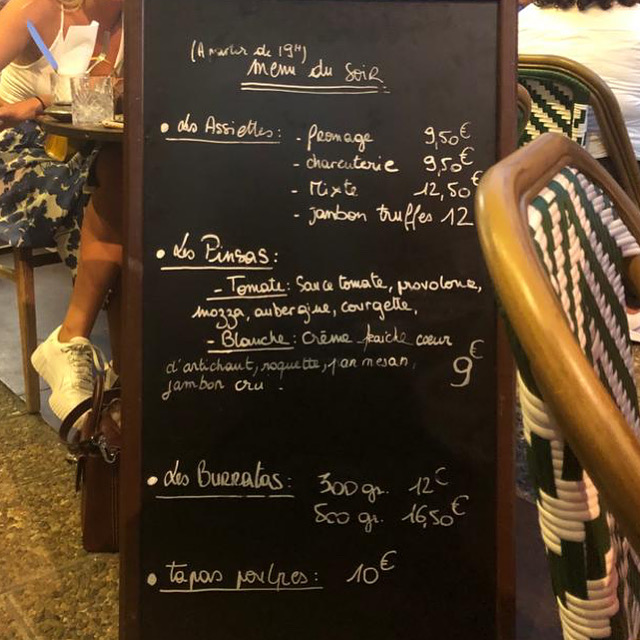 (A partir de 19H)
Menu du Soir
• Les Assiettes : - fromage 9,50€
- charcuterie 9,50€
- Mixte 12,50€
- jambon truffes 12
• Les Pinsas :
- Tomate : Sauce tomate, provolone,
mozza, aubergine, courgette,
- Blanche : Crème fraiche coeur
d'artichaut, roquette, parmesan, 9€
jambon cru.
• Les Burratas : 300 gr. 12€
500 gr. 16,50€
• tapas poulpes : 10€